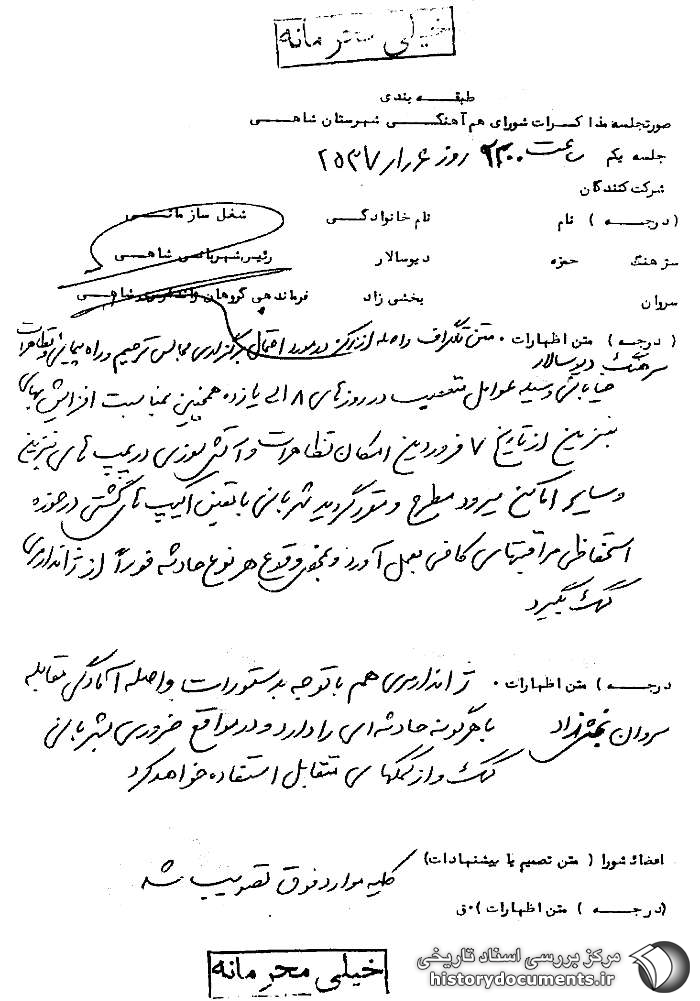 خیلی محرمانه
طبقه بندی
صورتجلسه مذاکرات شورای هم آهنگی شهرستان شاهی
جلسه یکم ساعت ۹۳۰۰ روز ۶ ر ار ۲۵۳۷
شرکت کنندگان
(درجه) نام نام خانوادگی شغل سازمانی
سرهنگ حمزه دیوسالار رئیس شهربانی شاهی
سروان بخشی زاد فرماندهی گروهان ژاندارمری شاهی
(درجه) متن اظهارات ۰ متن تلگراف واصله از مرکز در مورد احتمال برگزاری مجالس ترحیم و راه پیمائی و تظاهرات
سرهنگ دیوسالار
خیابانی وسیله عوامل متعصب در روزهای ۸ الی یازده همچنین بمناسبت افزایش بهای
بنزین از تاریخ ۷ فروردین امکان تظاهرات و آتش سوزی در پمپ های بنزین
و سایر اماکن میرود مطرح و مقرر گردید شهربانی با تعیین اکیپ های گشتی در حوزه
استحفاظی مراقبتهای کافی بعمل آورد و بمحض وقوع هر نوع حادثه فوراً از ژاندارمری
کمک بگیرد
درجه) متن اظهارات ۰ ژاندارمری هم با توجه بدستورات واصله آمادگی مقابله
سروان بخشی زاد با هرگونه حادثه ای را دارد و در مواقع ضروری بشهربانی
کمک و از کمکهای متقابل استفاده خواهد کرد
اعضاء شورا (متن تصمیم یا پیشنهادات) کلیه موارد فوق تصویب شد
(درجه) متن اظهارات)۰ق
خیلی محرمانه
مرکز بررسی اسناد تاریخی
historydocuments.ir